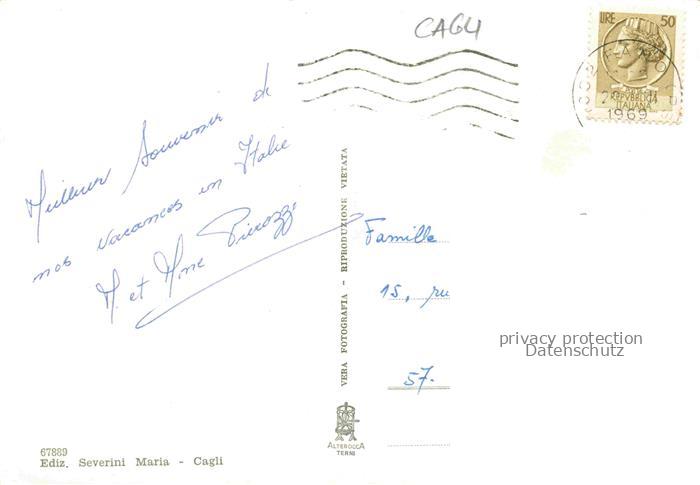 CAGLI
LIRE 50
REPUBBLICA
ITALIANA
1969
Meilleur Souvenir de
nos vacances en Italie
M. et Mme Pierozzi
VERA FOTOGRAFIA - RIPRODUZIONE VIETATA
Famille
15, ru
57.
privacy protection
Datenschutz
ALTEROCCA
TERNI
67889
Ediz. Severini Maria - Cagli